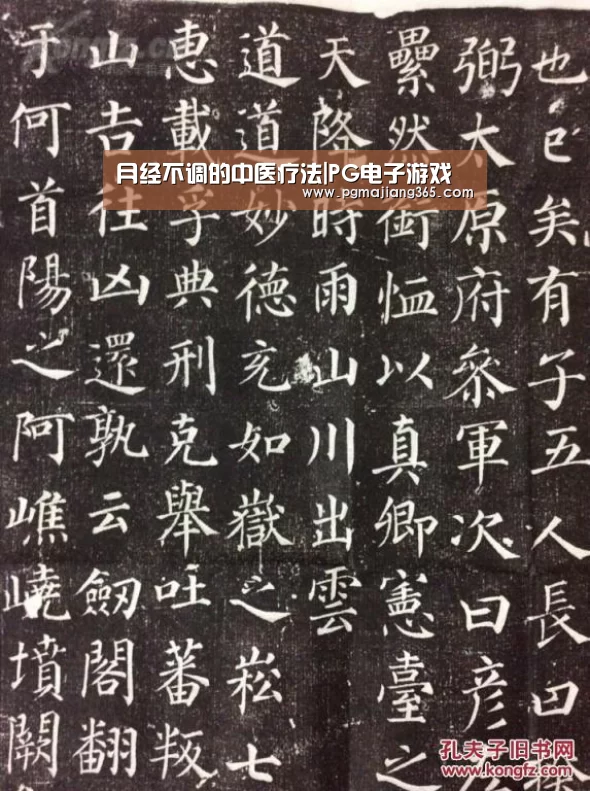 也已矣有子五人長曰
弼太原府叅軍次曰彦
纍然銜恤以真卿憲臺之
天降時雨山川出雲
道道妙德充如嶽之崧七
惠載孚典刑克舉吐蕃叛
山吉往凶還孰云劒閣翻
于何首陽之阿嶕嶢墳闕
月经不调的中医疗法|PG电子游戏
www.pgmajiang365.com
孔夫子旧书网
www.kongfz.com